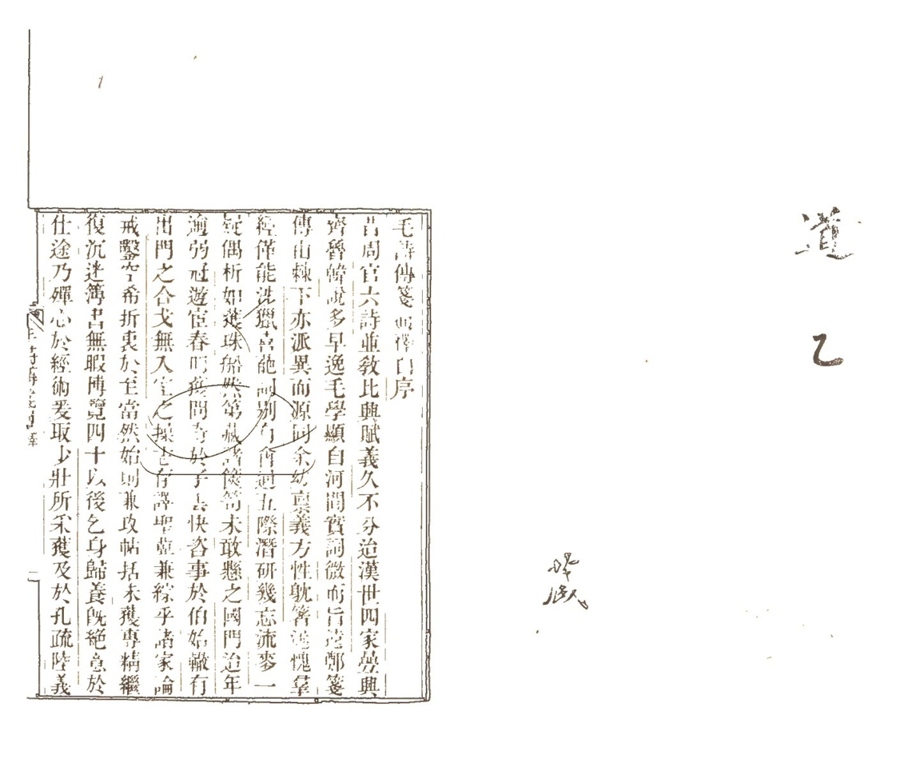 道
乙
毛詩傳箋通釋自序
昔周官六詩並敎比興賦義久不分迨漢世四家疊興
齊魯韓說多早逸毛學顯自河間實詞微而旨遠鄭箋
傳由棘下亦派異而源同余幼稟義方性躭箸述愧羣
經僅能涉獵喜葩詞別有會通五際潛研幾忘流麥一
疑偶析如獲珠船然第藏諸篋笥未敢懸之國門迨年
逾弱冠遊宦春明獲問奇於子雲快咨事於伯始轍有
出門之合戈無入室之操志存譯聖冀兼綜乎諸家論
戒鑿空希折衷於至當然始則兼攻帖括未獲專精繼
復沉迷簿書無暇博覽四十以後乞身歸養旣絕意於
仕途乃殫心於經術爰取少壯所采獲及於孔疏陸義